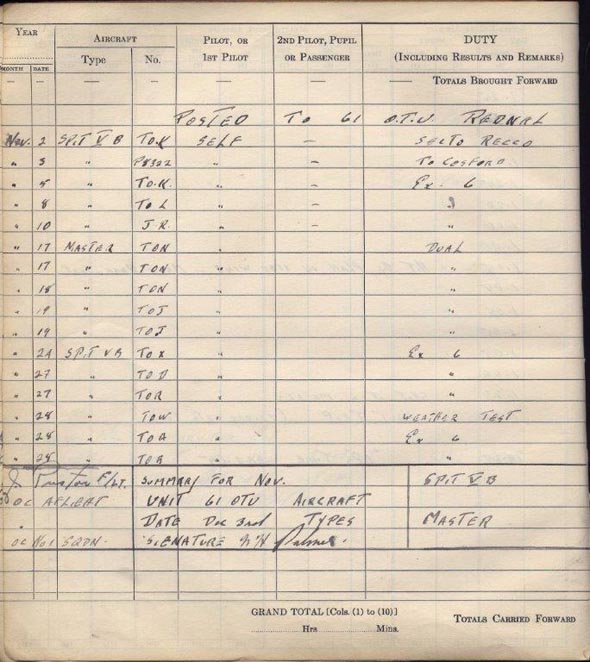 YEAR AIRCRAFT PILOT, OR 2ND PILOT, PUPIL DUTY
MONTH DATE Type No. 1ST PILOT OR PASSENGER (INCLUDING RESULTS AND REMARKS)
— — — — — — TOTALS BROUGHT FORWARD
POSTED TO 61 O.T.U. REDNAL
Nov. 2 SPIT V B TO.K SELF — RECCO
" 3 " P8322 " — TO COSFORD
" 5 " TO.K. " — Ex. 6
" 8 " TO L " —
" 10 " J.R. " —
" 17 MASTER TON " DUAL
" 17 " TON " "
" 18 " TON " "
" 19 " TOJ " "
" 19 " TOJ " "
" 24 SPIT V B TO X " Ex 6
" 27 " TO D " "
" 27 " TOR " "
" 28 " TOW " WEATHER TEST
" 28 " TOA " Ex 6
" 28 " TOA " "
F/LT. SUMMARY FOR NOV. SPIT V B
OC AFLIGHT UNIT 61 OTU AIRCRAFT
DATE Dec 3rd TYPES MASTER
OC No 1 SQDN. SIGNATURE Palmer.
GRAND TOTAL [Cols. (1) to (10)]
Hrs Mins.
TOTALS CARRIED FORWARD